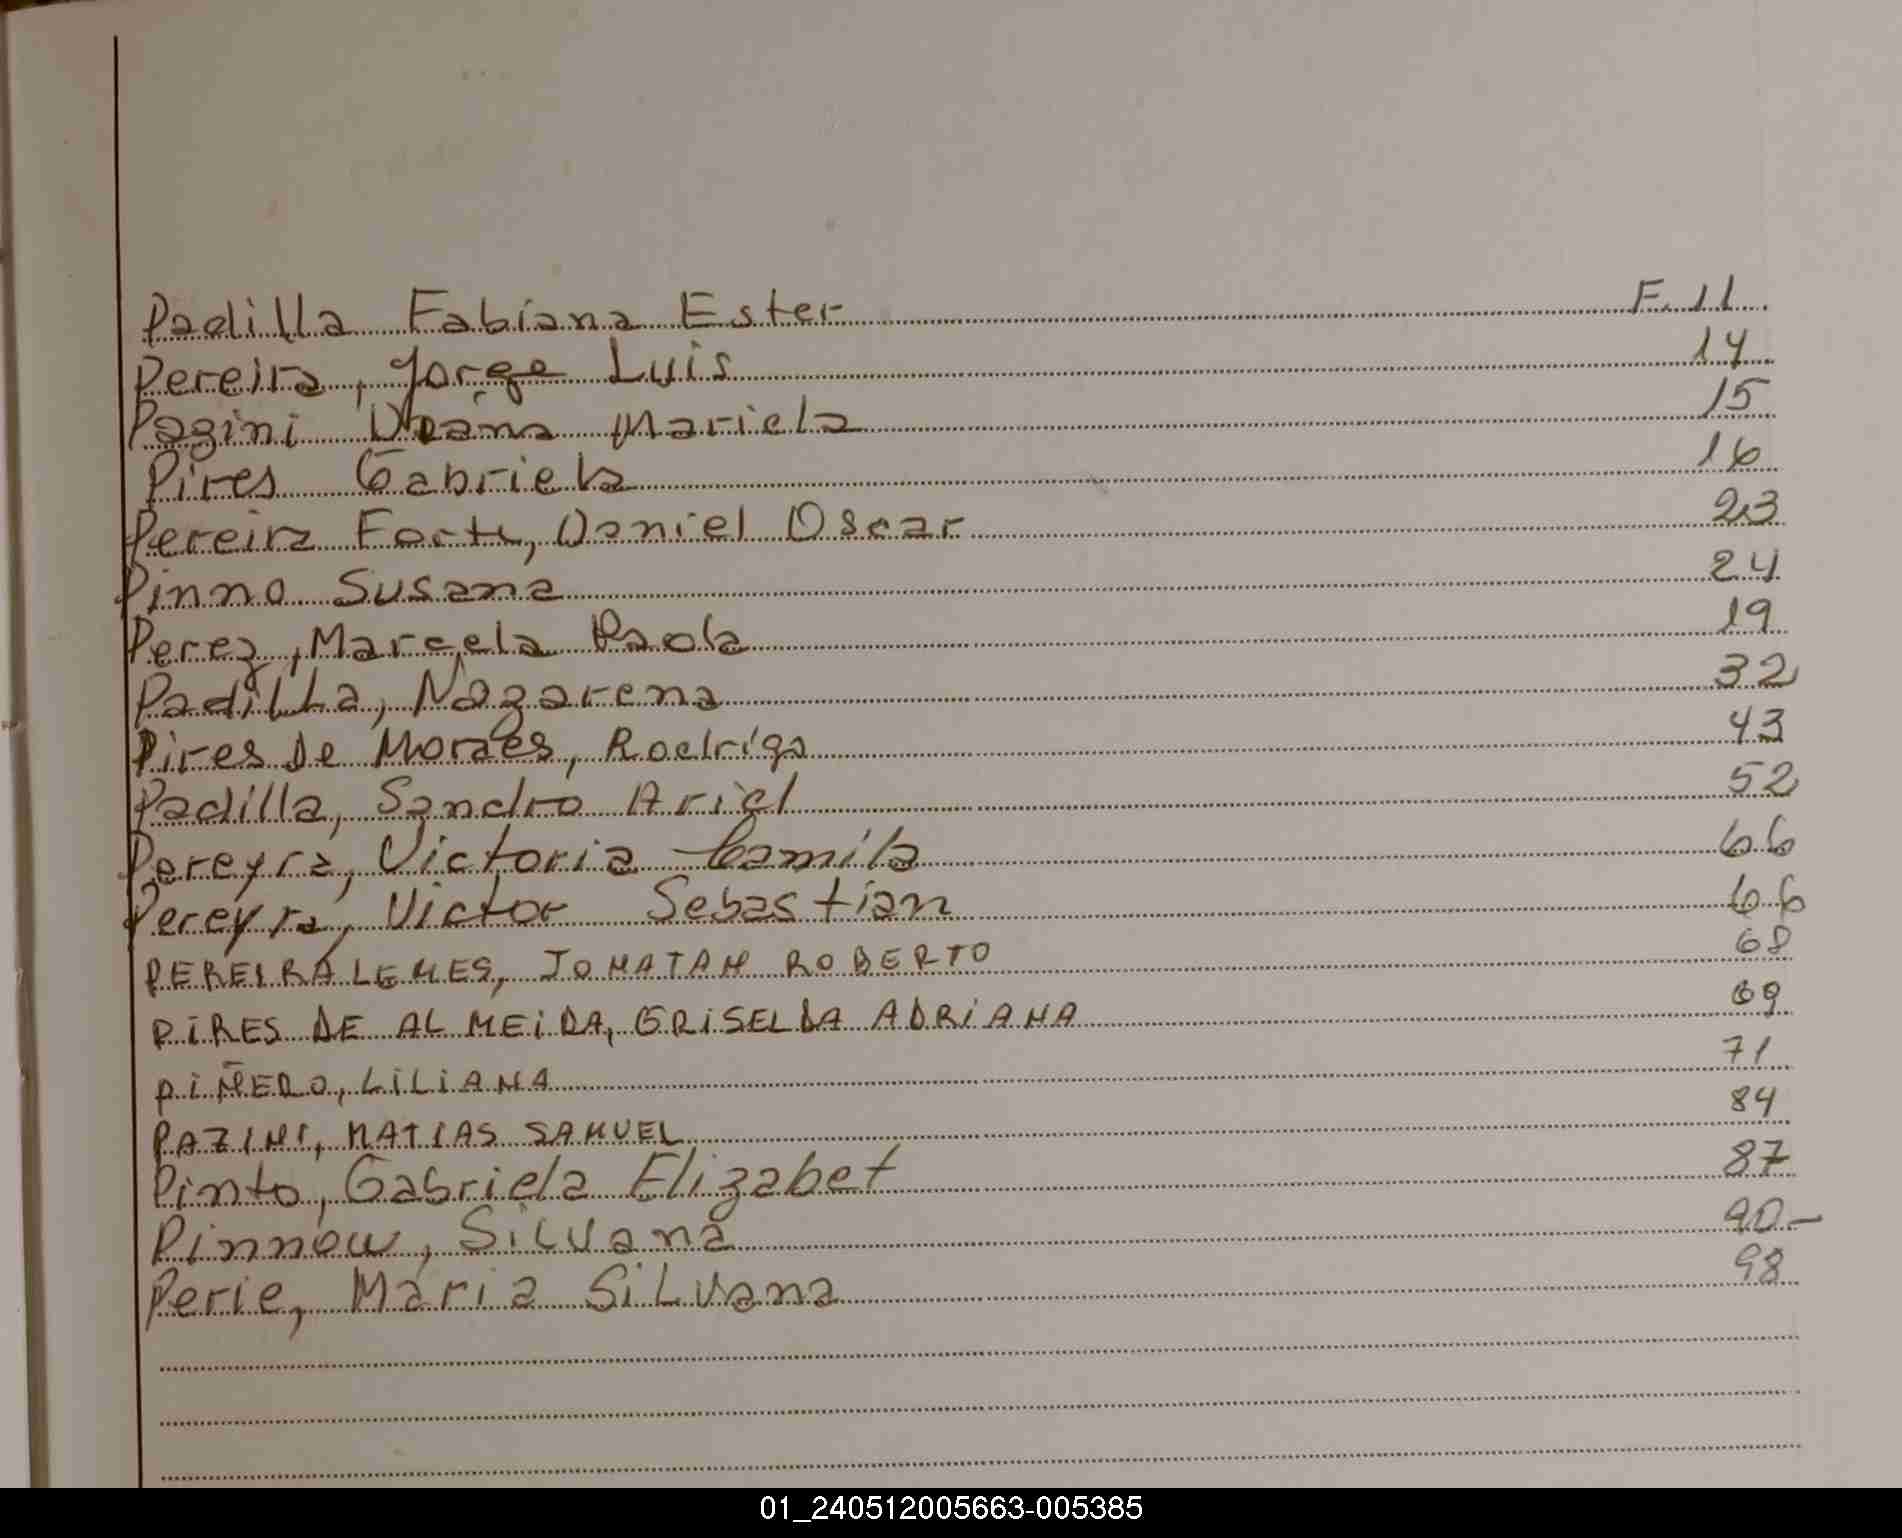 Padilla Fabiana Ester F. 11
Pereira, Jorge Luis 14
Pazini Diana Mariela 15
Pires Gabriela 16
Pereira Forte, Daniel Oscar 23
Pinno Susana 24
Perez, Marcela Paola 19
Padilla, Nazarena 32
Pires De Moraes, Rodrigo 43
Padilla, Sandro Ariel 52
Pereyra, Victoria Camila 66
Pereyra, Victor Sebastian 66
PEREIRA LEMES, JONATAN ROBERTO 68
PIRES DE ALMEIDA, GRISELDA ADRIANA 69
PIÑERO, LILIANA 71
PAZINI, MATIAS SAMUEL 84
Pinto, Gabriela Elizabet 87
Pinnow, Silvana 90-
Perie, Maria Silvana 98
01_240512005663-005385